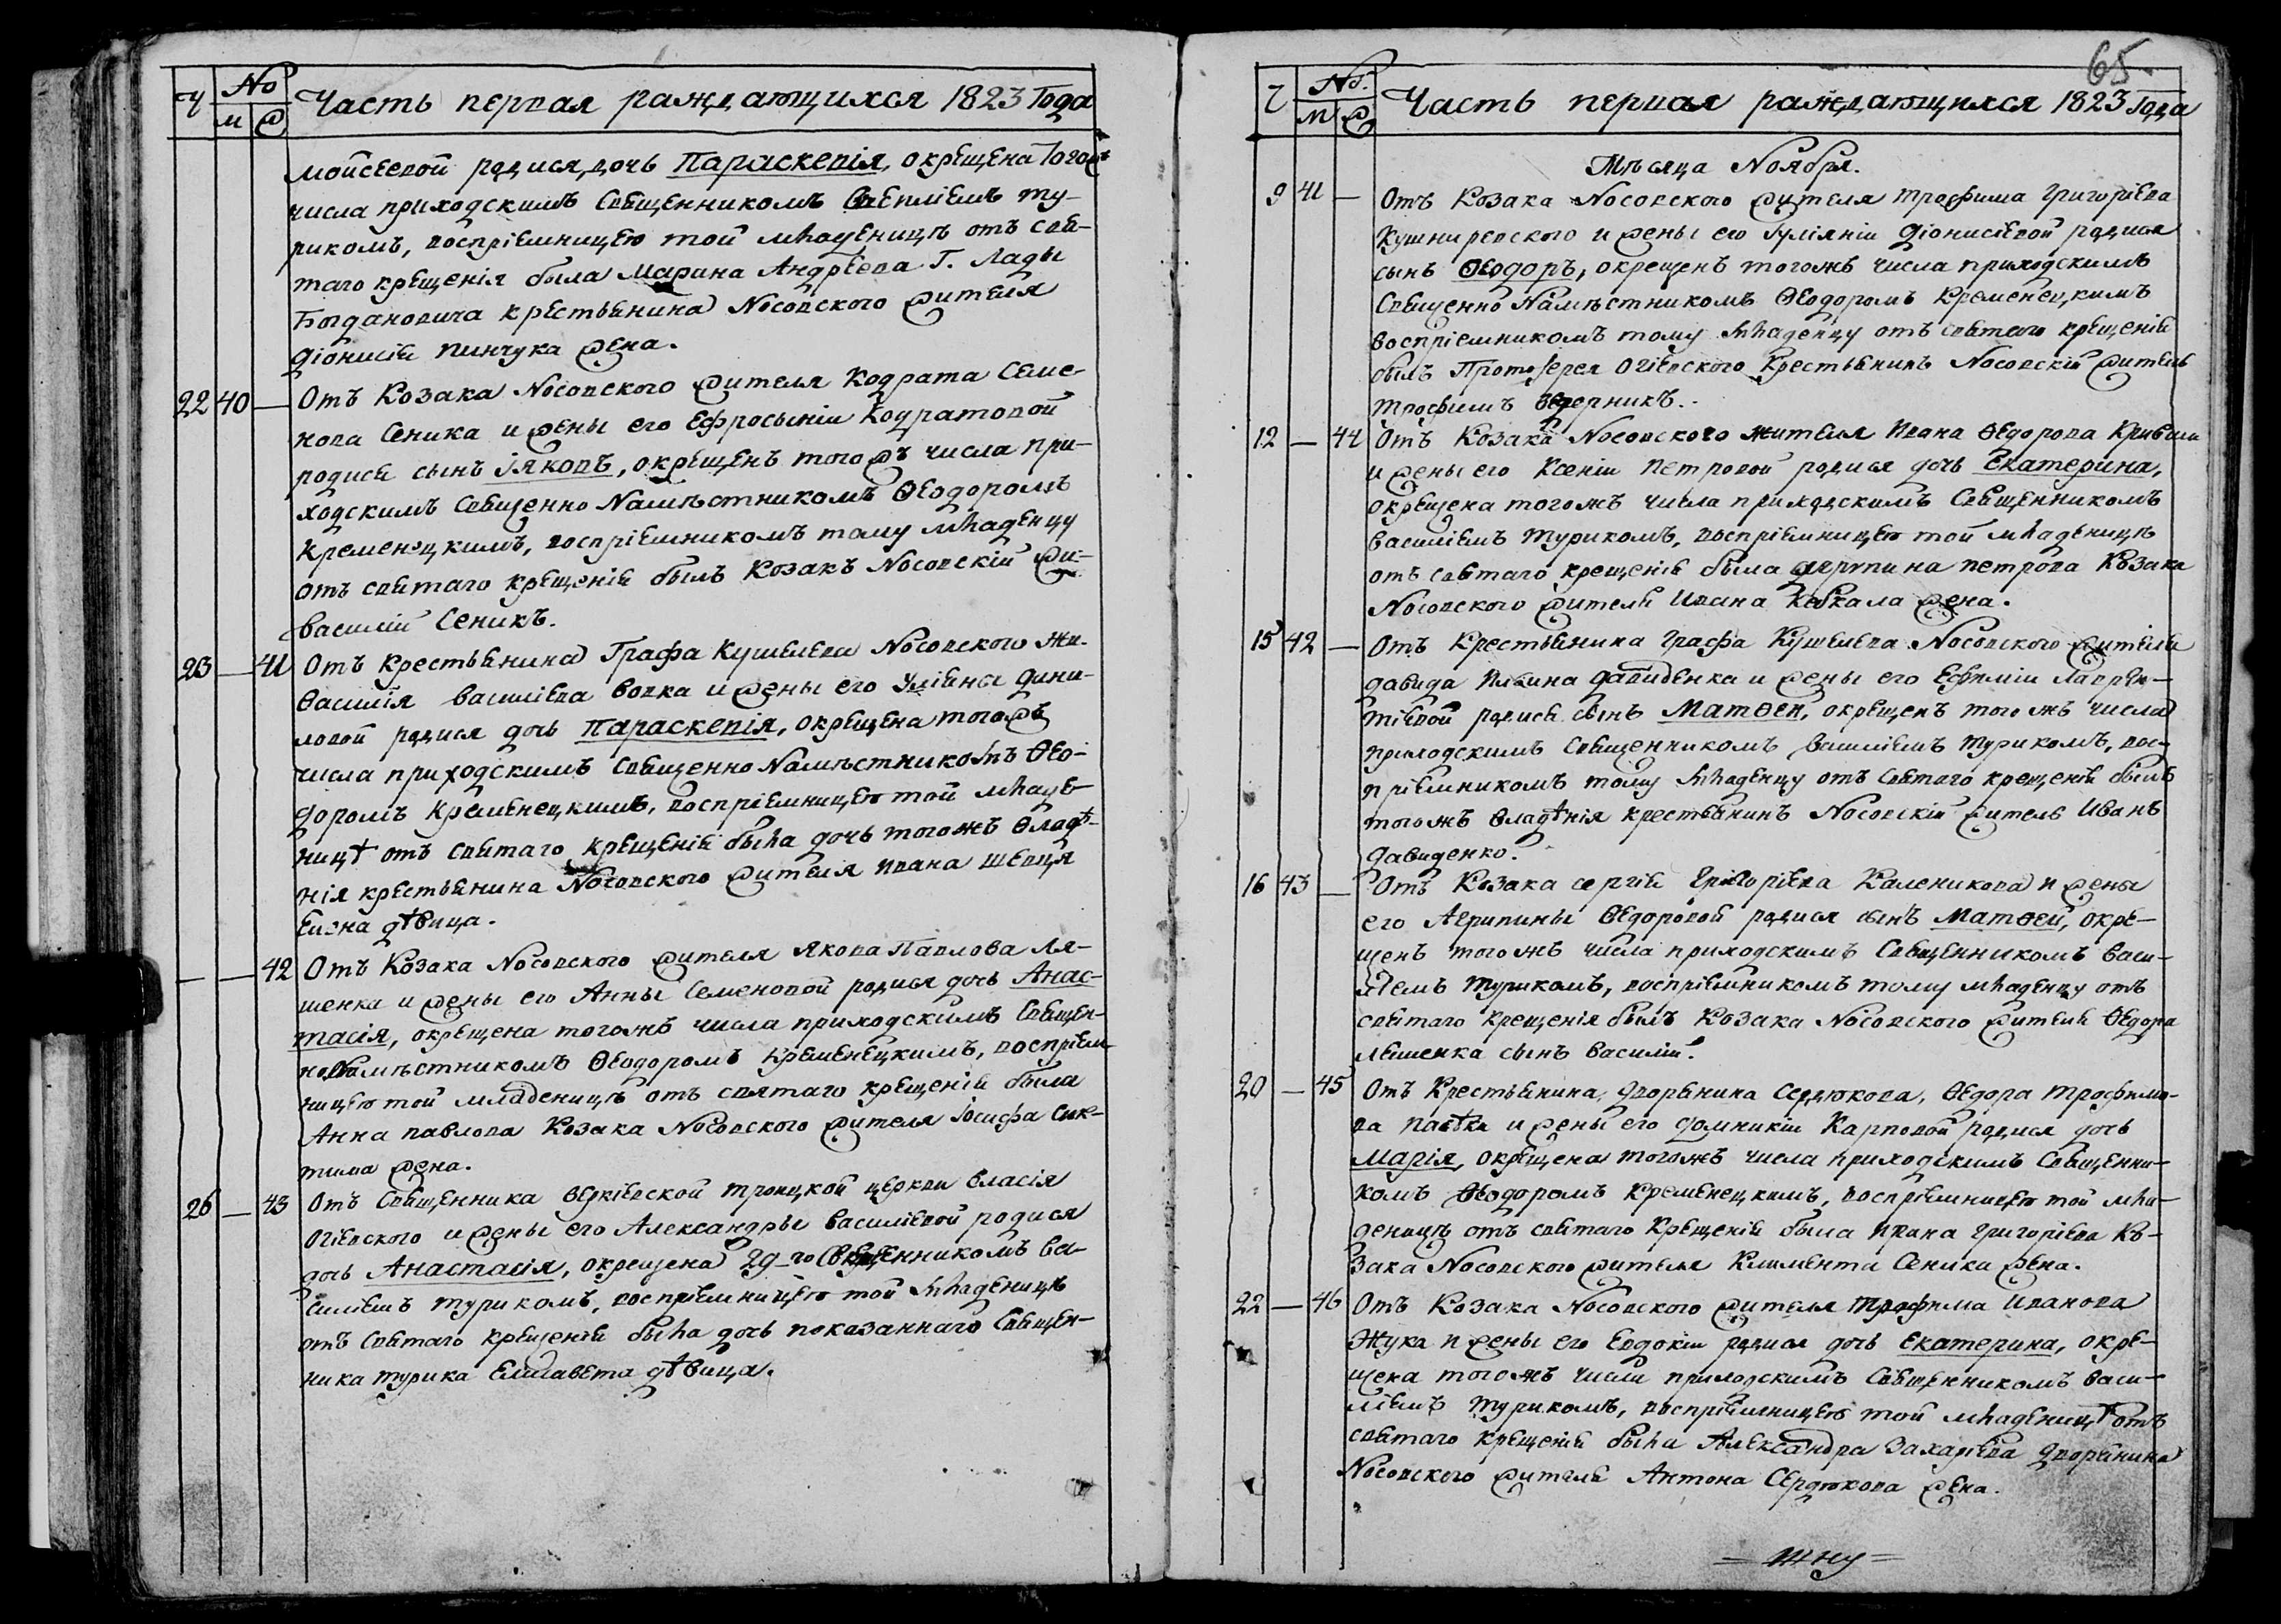 Ч № м ж Часть первая раждающихся 1823 Года
Мойсеевой родися, дочь Параскевія, окрещена Тогожъ
числа приходскимъ Священникомъ Василіемъ Ту-
рикомъ, воспріемницею той младеницѣ отъ свя-
таго крещенія была Марина Андрѣева Г. Лады
Богдановича крестьянина Носовского жителя
Діонисія Пинчука жена.
22 40 — Отъ Козака Носовского жителя Кодрата Семе-
нова Сеника и жены его Ефросыніи Кодратовой
родися сынъ Іяковъ, окрещенъ тогожъ числа при-
ходскимъ Священно Намѣстникомъ Ѳеодоромъ
Кременецкимъ, воспріемникомъ тому младенцу
отъ святаго крещенія былъ Козакъ Носовскій жи-
Василій Сеникъ.
23 — 41 Отъ Крестьянина Графа Кушелева Носовского жи-
Василія Василіева Вовка и жены его Уліяны Дани-
ловой родися дочь Параскевія, окрещена тогожъ
числа приходскимъ Священно Намѣстникомъ Ѳео-
доромъ Кременецкимъ, воспріемницею той младе-
ницѣ отъ святаго крещенія была дочь тогожъ владѣ-
нія крестьянина Носовского жителя Ивана Шевця
Елена дѣвица.
— — 42 Отъ Козака Носовского жителя Якова Павлова Ля-
шенка и жены его Анны Семеновой родися дочь Анас-
тасія, окрещена тогожъ числа приходскимъ Священ-
но Намѣстникомъ Ѳеодоромъ Кременецкимъ, воспріем-
ницею той младеницѣ отъ святаго крещенія была
Анна Павлова Козака Носовского жителя Іосифа Сик-
тима жена.
26 — 43 Отъ Священника Веркіевской Троицкой церкви Власія
Огіевского и жены его Александры Василіевой родися
дочь Анастасія, окрещена 29-го Священникомъ Ва-
силіемъ Турикомъ, воспріемницею той младеницѣ
отъ святаго крещенія была дочь показаннаго Священ-
ника Турика Елисавета дѣвица.
65
Ч №. м ж Часть первая раждающихся 1823 Года
Мѣсяца Ноября.
9 41 — Отъ Козака Носовского жителя Трофима Григоріева
Кушниревского и жены его Гуліяніи Діонисіевой родися
сынъ Ѳеодоръ, окрещенъ тогожъ числа приходскимъ
Священно Намѣстникомъ Ѳеодоромъ Кременецкимъ
воспріемникомъ тому младенцу отъ святаго крещенія
былъ Протоіерея Огіевского Крестьянинъ Носовскій житель
Трофимъ Ведерникъ.
12 — 44 Отъ Козака Носовского жителя Ивана Ѳедорова
и жены его Ксеніи Петровой родися дочь Екатерина,
окрещена тогожъ числа приходскимъ Священникомъ
Василіемъ Турикомъ, воспріемницею той младеницѣ
отъ святаго крещенія была Агрупина Петрова Козака
Носовского жителя Ивана Кебкала жена.
15 42 — Отъ Крестьянина Графа Кушелева Носовского жителя
Давида Давиденка и жены его Ефиміи Лаврен-
тіевой родися сынъ Матѳей, окрещенъ тогожъ числа
приходскимъ Священникомъ Василіемъ Турикомъ, вос-
пріемникомъ тому младенцу отъ святаго крещенія былъ
тогожъ владѣнія крестьянинъ Носовскій житель Иванъ
Давиденко.
16 43 — Отъ Козака Сергія Григоріева Каленикова и жены
его Агрипины Ѳедоровой родися сынъ Матѳей, окре-
щенъ тогожъ числа приходскимъ Священникомъ Васи-
ліемъ Турикомъ, воспріемникомъ тому младенцу отъ
святаго крещенія былъ Козака Носовского жителя Ѳедора
Ляшенка сынъ Василій.
20 — 45 Отъ Крестьянина, Дворянина Сердюкова, Ѳедора Трофимо-
ва и жены его Домникіи Карповой родися дочь
Марія, окрещена тогожъ числа приходскимъ Священни-
комъ Ѳеодоромъ Кременецкимъ, воспріемницею той мла-
деницѣ отъ святаго крещенія была Ирина Григоріева Ко-
зака Носовского жителя Климента Сеника жена.
22 — 46 Отъ Козака Носовского жителя Трофима Иванова
Жука и жены его Евдокіи родися дочь Екатерина, окре-
щена тогожъ числа приходскимъ Священникомъ Васи-
ліемъ Турикомъ, воспріемницею той младеницѣ отъ
святаго крещенія была Александра Захаріева Дворянина
Носовского жителя Антона Сердюкова жена.